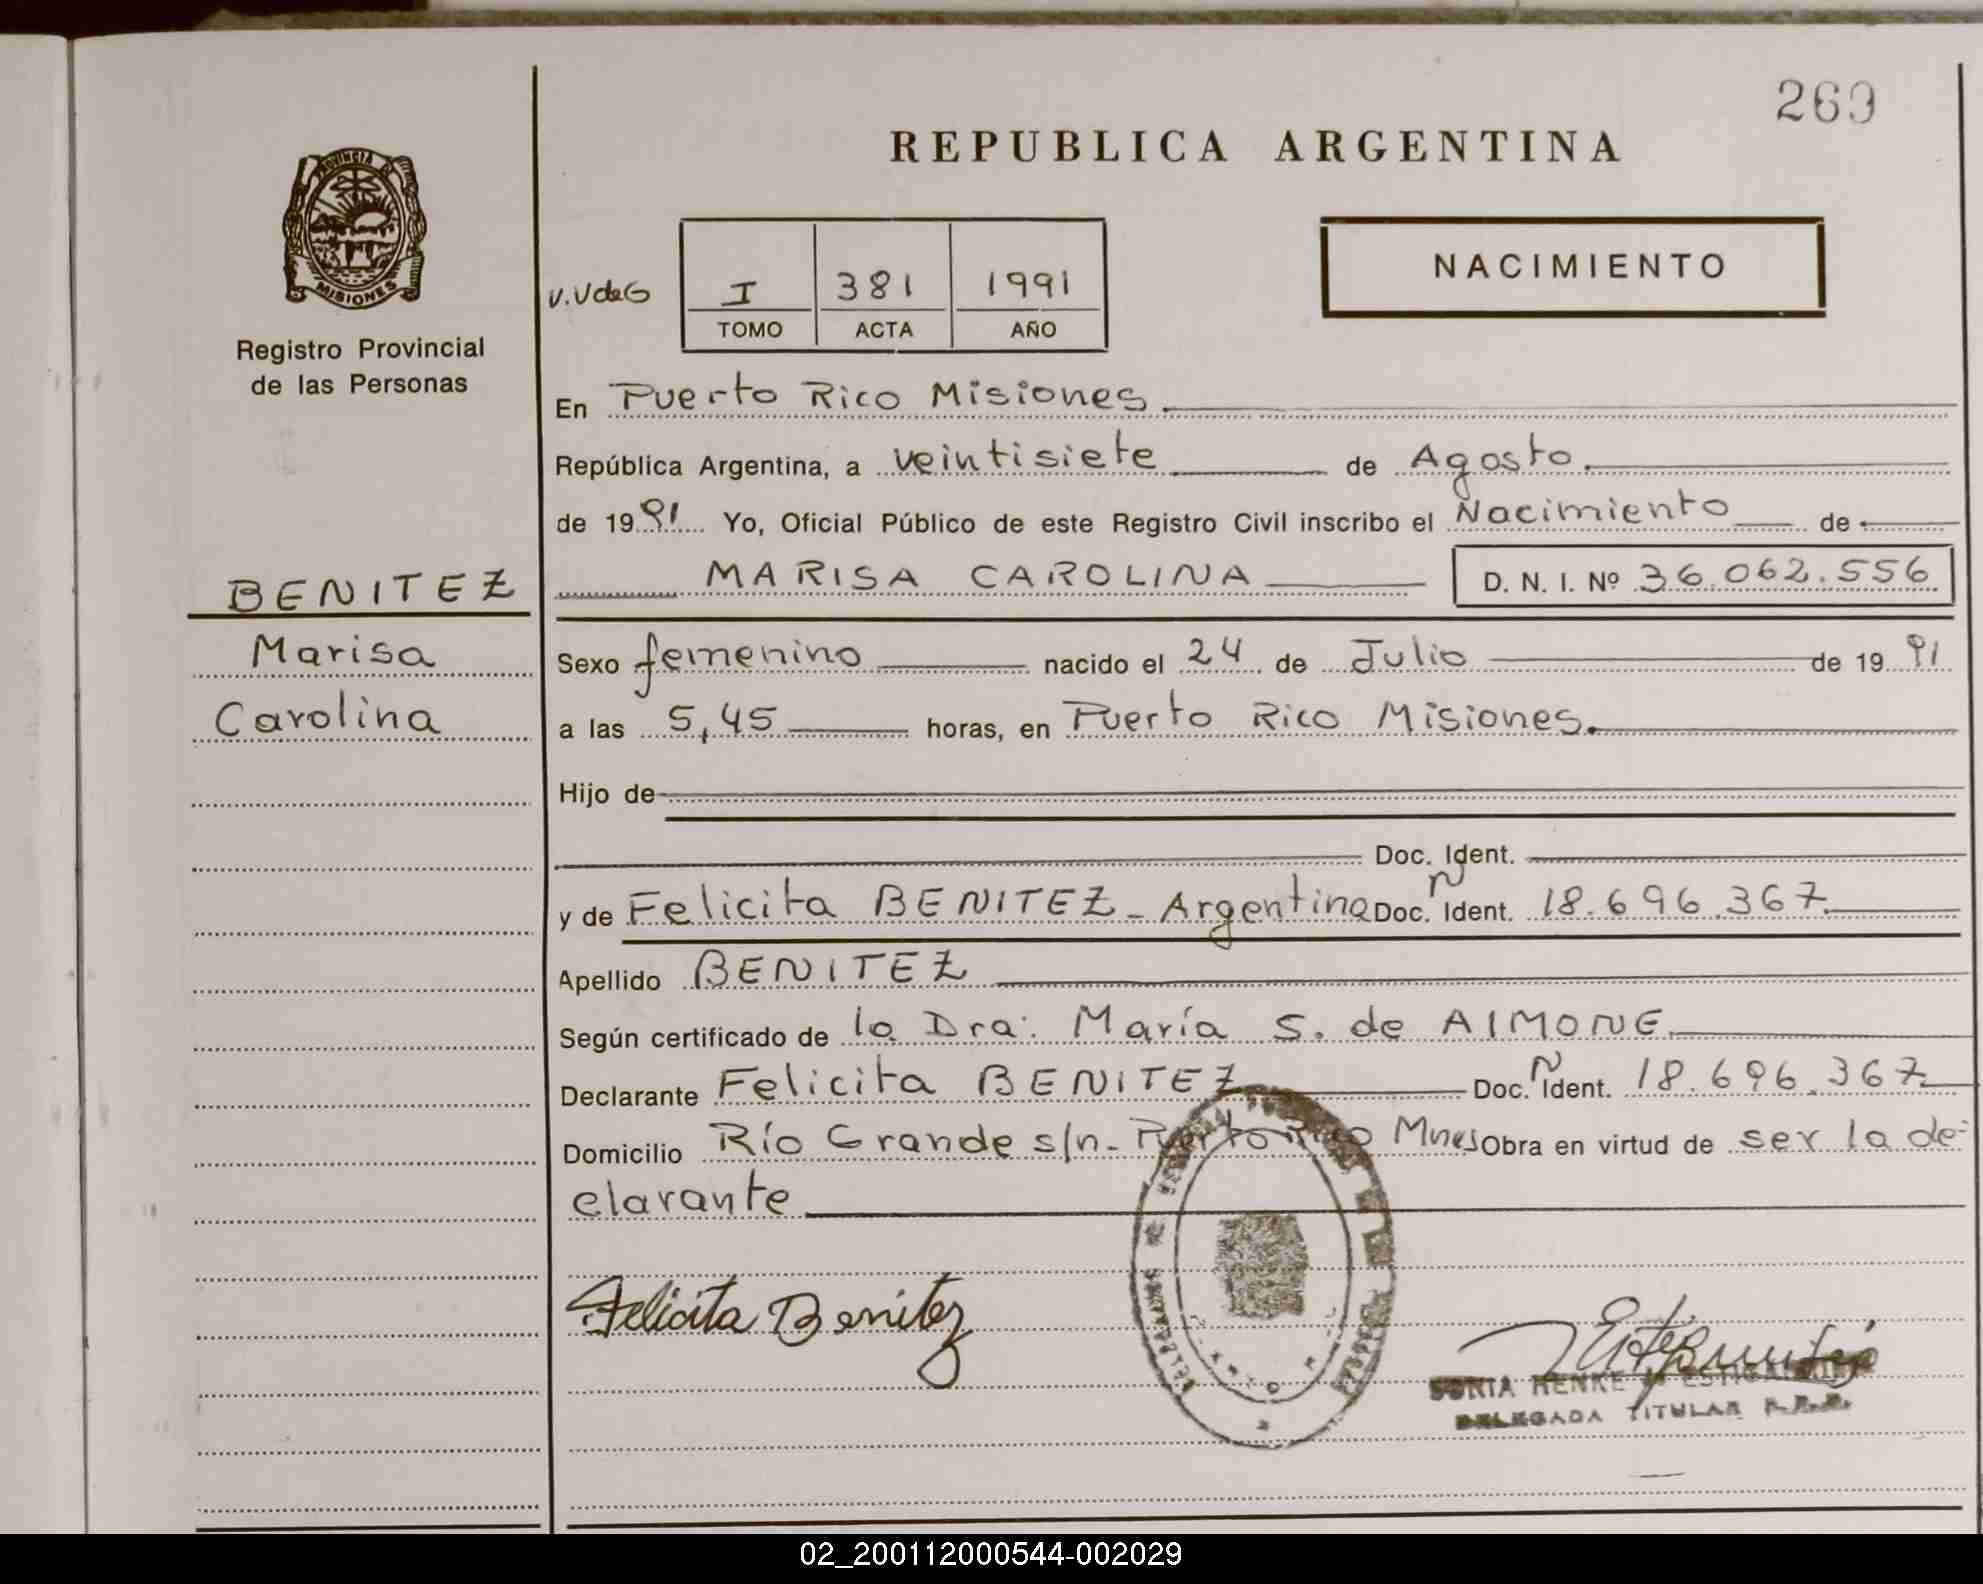 269
REPUBLICA ARGENTINA
PROVINCIA DE
MISIONES
Registro Provincial
de las Personas
V.VdeG
I 381 1991
TOMO ACTA AÑO
NACIMIENTO
En Puerto Rico Misiones.
República Argentina, a veintisiete de Agosto.
de 1991 Yo, Oficial Público de este Registro Civil inscribo el Nacimiento de
MARISA CAROLINA D. N. I. Nº 36.062.556
BENITEZ
Marisa
Carolina
Sexo femenino nacido el 24 de Julio de 1991
a las 5,45 horas, en Puerto Rico Misiones.
Hijo de
Doc. Ident.
y de Felicita BENITEZ - Argentina Doc. N Ident. 18.696.367
Apellido BENITEZ
Según certificado de la Dra: María S. de AIMONE
Declarante Felicita BENITEZ Doc. N Ident. 18.696.367
Domicilio Río Grande s/n - Puerto Rico Mnes Obra en virtud de ser la de-
clarante
Felicita Benitez
SONIA HENKE
DELEGADA TITULAR
02_200112000544-002029